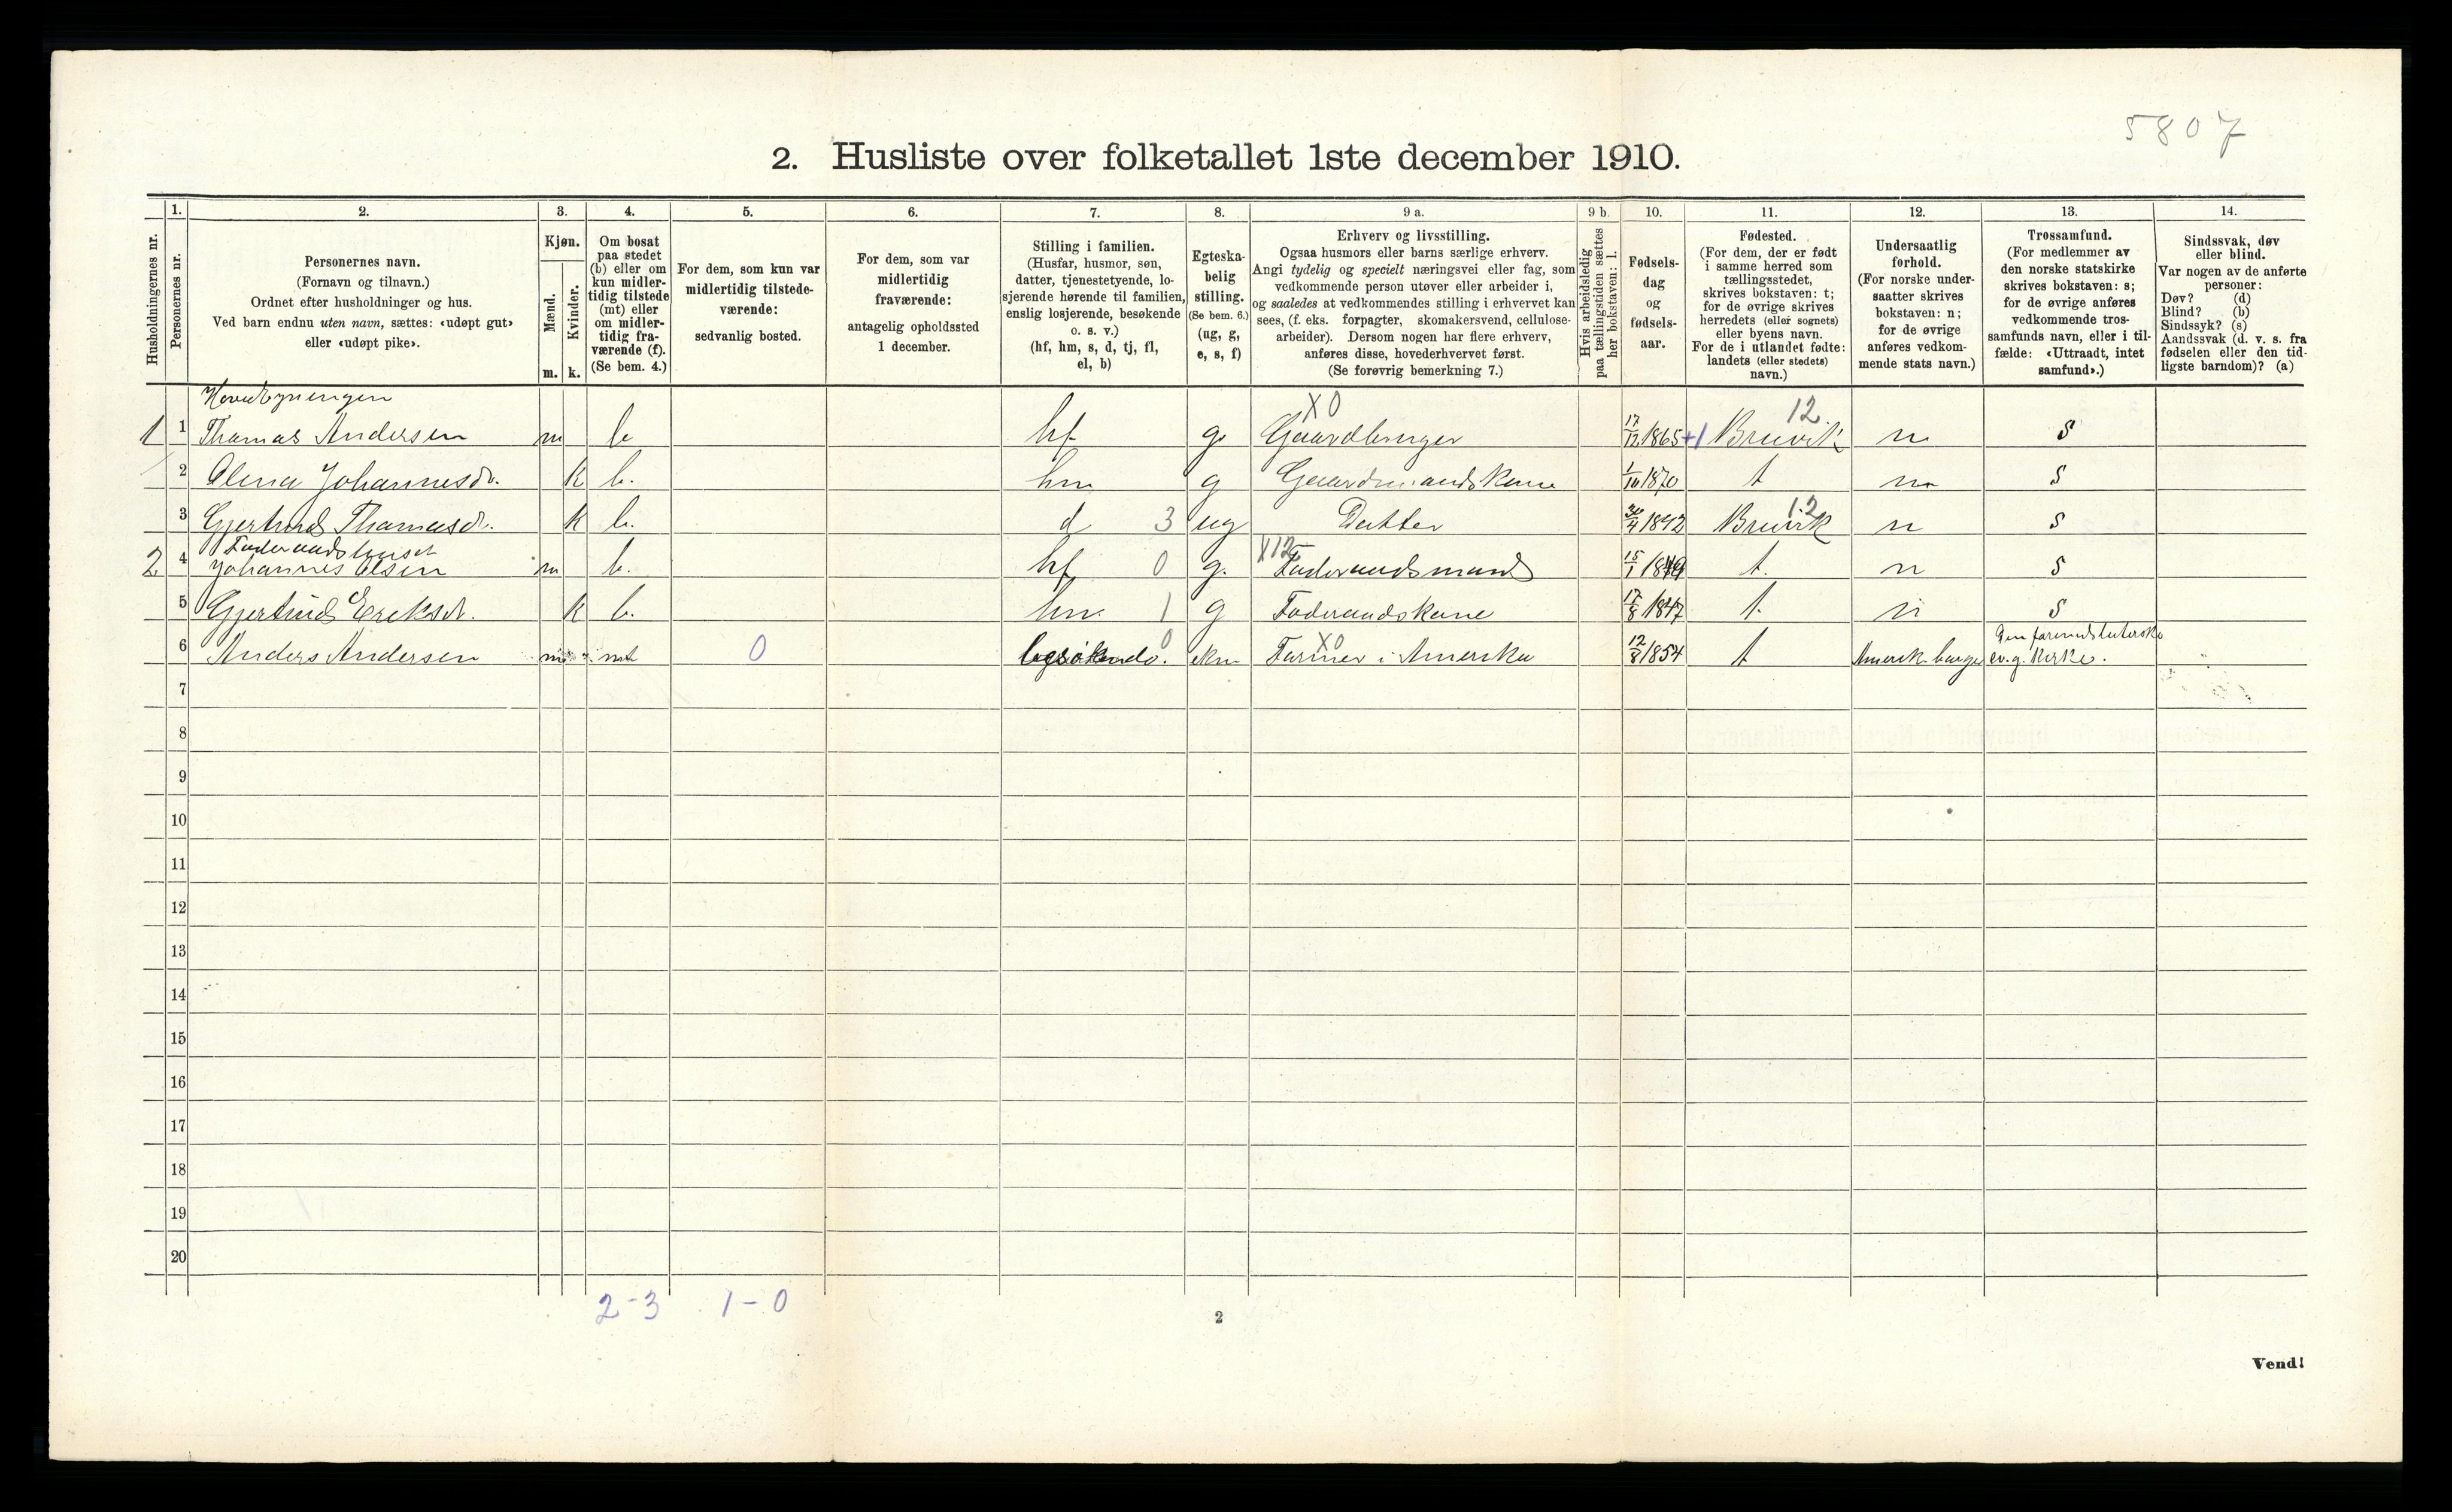 5807
2. Husliste over folketallet 1ste december 1910.
1. 2. 3. 4. 5. 6. 7. 8. 9 a. 9 b. 10. 11. 12. 13. 14.
Husholdningernes nr.
Personernes nr.
Personernes navn.
(Fornavn og tilnavn.)
Ordnet efter husholdninger og hus.
Ved barn endnu uten navn, sættes: «udøpt gut»
eller «udøpt pike».
Kjøn.
Mænd.
Kvinder.
m. k.
Om bosat
paa stedet
(b) eller om
kun midler-
tidig tilstede
(mt) eller
om midler-
tidig fra-
værende (f).
(Se bem. 4.)
For dem, som kun var
midlertidig tilstede-
værende:
sedvanlig bosted.
For dem, som var
midlertidig
fraværende:
antagelig opholdssted
1 december.
Stilling i familien.
(Husfar, husmor, søn,
datter, tjenestetyende, lo-
sjerende hørende til familien,
enslig losjerende, besøkende
o. s. v.)
(hf, hm, s, d, tj, fl,
el, b)
Egteska-
belig
stilling.
(Se bem. 6.)
(ug, g,
e, s, f)
Erhverv og livsstilling.
Ogsaa husmors eller barns særlige erhverv.
Angi tydelig og specielt næringsvei eller fag, som
vedkommende person utøver eller arbeider i,
og saaledes at vedkommendes stilling i erhvervet kan
sees, (f. eks. forpagter, skomakersvend, cellulose-
arbeider). Dersom nogen har flere erhverv,
anføres disse, hovederhvervet først.
(Se forøvrig bemerkning 7.)
Hvis arbeidsledig
paa tællingstiden sættes
her bokstaven: l.
Fødsels-
dag
og
fødsels-
aar.
Fødested.
(For dem, der er født
i samme herred som
tællingsstedet,
skrives bokstaven: t;
for de øvrige skrives
herredets (eller sognets)
eller byens navn.
For de i utlandet fødte:
landets (eller stedets)
navn.)
Undersaatlig
forhold.
(For norske under-
saatter skrives
bokstaven: n;
for de øvrige
anføres vedkom-
mende stats navn.)
Trossamfund.
(For medlemmer av
den norske statskirke
skrives bokstaven: s;
for de øvrige anføres
vedkommende tros-
samfunds navn, eller i til-
fælde: «Uttraadt, intet
samfund».)
Sindssvak, døv
eller blind.
Var nogen av de anførte
personer:
Døv? (d)
Blind? (b)
Sindssyk? (s)
Aandssvak (d. v. s. fra
fødselen eller den tid-
ligste barndom)? (a)
Hovedbygningen X0 12
1 1 Thomas Andersen m b hf g. Gaardbruger 17/12 1865 +1 Bruvik n s
2 Olena Johannesdr. k b. hm g Gaardmandskone 1/10 1870 t n s
12
3 Gjertrud Thomasdr. k b. d 3 ug Datter 30/4 Bruvik n s
Føderaadshuset X12
2 4 Johannes Olsen m b. hf 0 g. Føderaadsmand 15/1 t. n s
5 Gjertrud Eriksdr. k b. hm. 1 g Føderaadskone 17/8 1847 t. n s
0 X0
6 Anders Andersen m mt 0 besøkende. ekm Farmer i Amerika 12/8 1854 t Amerik. borger ev. g. kirke.
7
8
9
10
11
12
13
14
15
16
17
18
19
20
2-3 1-0
2
Vend!